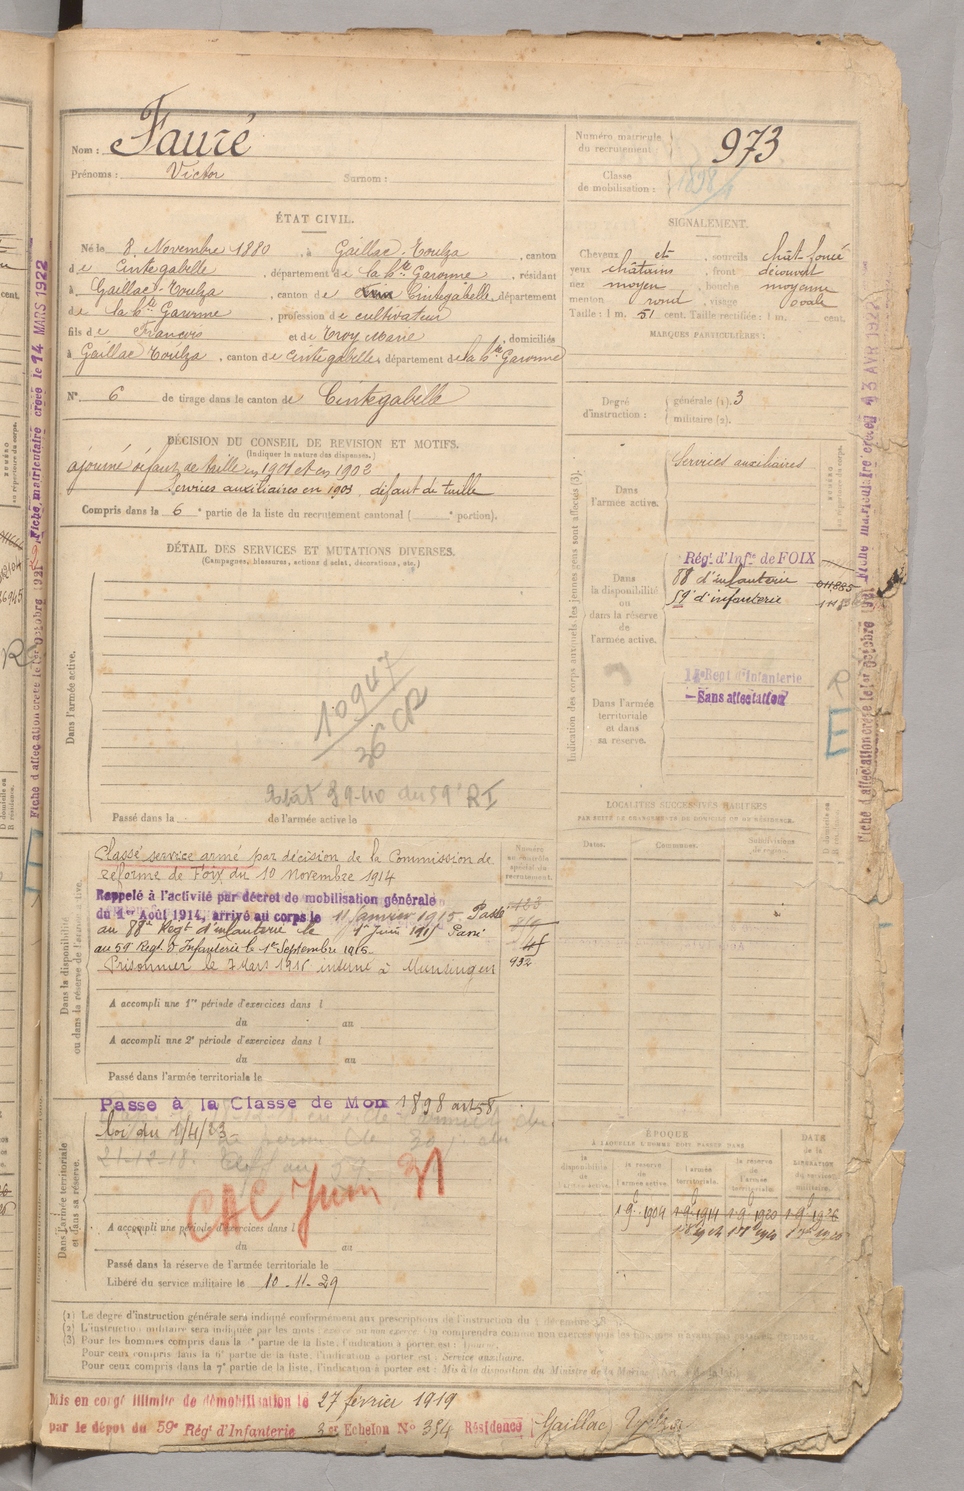 Nom : Fauré
Prénoms : Victor Surnom :
ÉTAT CIVIL.
Né le 8 Novembre 1880, à Gaillac-Toulza, canton
de Cintegabelle, département de la Hte Garonne, résidant
à Gaillac-Toulza, canton de Cintegabelle, département
de la Hte Garonne, profession de cultivateur
fils de François et de Troy Marie, domiciliés
à Gaillac Toulza, canton de Cintegabelle, département de la Hte Garonne
N° 6 de tirage dans le canton de Cintegabelle
DÉCISION DU CONSEIL DE REVISION ET MOTIFS.
(Indiquer la nature des dispenses.)
ajourné défaut de taille en 1901 et en 1902
Services auxiliaires en 1903 défaut de taille
Compris dans la 6e partie de la liste du recrutement cantonal ( e portion).
DÉTAIL DES SERVICES ET MUTATIONS DIVERSES.
(Campagnes, blessures, actions d'éclat, décorations, etc.)
Dans l'armée active.
10947
36 CR
39-40 du 59e RI
Passé dans la de l'armée active le
Dans la disponibilité
ou dans la réserve de l'armée active.
Classé service armé par décision de la Commission de
réforme de Foix du 10 Novembre 1914
Rappelé à l'activité par décret de mobilisation générale
du 1er Août 1914, arrivé au corps le 11 Janvier 1915. Passé
au 88e Regt d'infanterie le 1er Juin 1915 Passé
au 59e Regt d'Infanterie le 1er Septembre 1915.
Prisonnier le 7 Mars 1916 interné à Munsingen
A accompli une 1re période d'exercices dans l
du au
A accompli une 2e période d'exercices dans l
du au
Passé dans l'armée territoriale le
Numéro
au contrôle
spécial du
recrutement.
45
932
Dans l'armée territoriale
et dans sa réserve.
Passé à la Classe de Mon 1898 art 58
loi du 1/4/23
21-12-18.
CAC Juin 31
A accompli une période d'exercices dans l
du au
Passé dans la réserve de l'armée territoriale le
Libéré du service militaire le 10-11-29
Numéro matricule
du recrutement : 973
Classe
de mobilisation : 1898
SIGNALEMENT.
Cheveux et sourcils chât foncé
yeux châtains, front découvert
nez moyen, bouche moyenne
menton rond, visage ovale
Taille : 1 m. 51 cent. Taille rectifiée : 1 m. cent.
MARQUES PARTICULIÈRES :
Degré
d'instruction :
générale (1). 3
militaire (2).
Indication des corps auxquels les jeunes gens sont affectés (3).
Dans
l'armée active.
Services auxiliaires
NUMÉRO
au répertoire du corps.
Dans
la disponibilité
ou
dans la réserve
de
l'armée active.
Régt d'Infie de FOIX
88 d'infanterie 011885
59e d'infanterie
Dans l'armée
territoriale
et dans
sa réserve.
Regt d'Infanterie
Sans affectation
LOCALITÉS SUCCESSIVES HABITÉES
PAR SUITE DE CHANGEMENTS DE DOMICILE OU DE RÉSIDENCE.
Dates. Communes. Subdivisions
de région.
D domicile ou
R résidence.
ÉPOQUE
À LAQUELLE L'HOMME DOIT PASSER DANS
DATE
de la
LIBÉRATION
du service
militaire.
la disponibilité
de
l'armée active.
la réserve
de
l'armée active.
l'armée
territoriale.
la réserve
de
l'armée
territoriale.
1-9bre-1904 1-9bre 1914 1-9bre 1920 1-9bre 1926
Fiche d'affectation créée le 1er octobre 1921
Fiche matriculaire créée le 14 MARS 1922
Fiche d'affectation créée le 1er octobre 1921 Fiche matriculaire créée 13 AVR 1922
(1) Le degré d'instruction générale sera indiqué conformément aux prescriptions de l'instruction du
(2) L'instruction militaire sera indiquée par les mots : exercé ou non exercé. On comprendra comme non exercés
(3) Pour les hommes compris dans la partie de la liste, l'indication à porter est :
Pour ceux compris dans la 6e partie de la liste, l'indication à porter est : Service auxiliaire.
Pour ceux compris dans la 7e partie de la liste, l'indication à porter est : Mis à la disposition du Ministre de la Marine
Mis en congé illimité de démobilisation le 27 février 1919
par le dépôt du 59e Régt d'Infanterie 3e Echelon N° 354 Résidence Gaillac Toulza